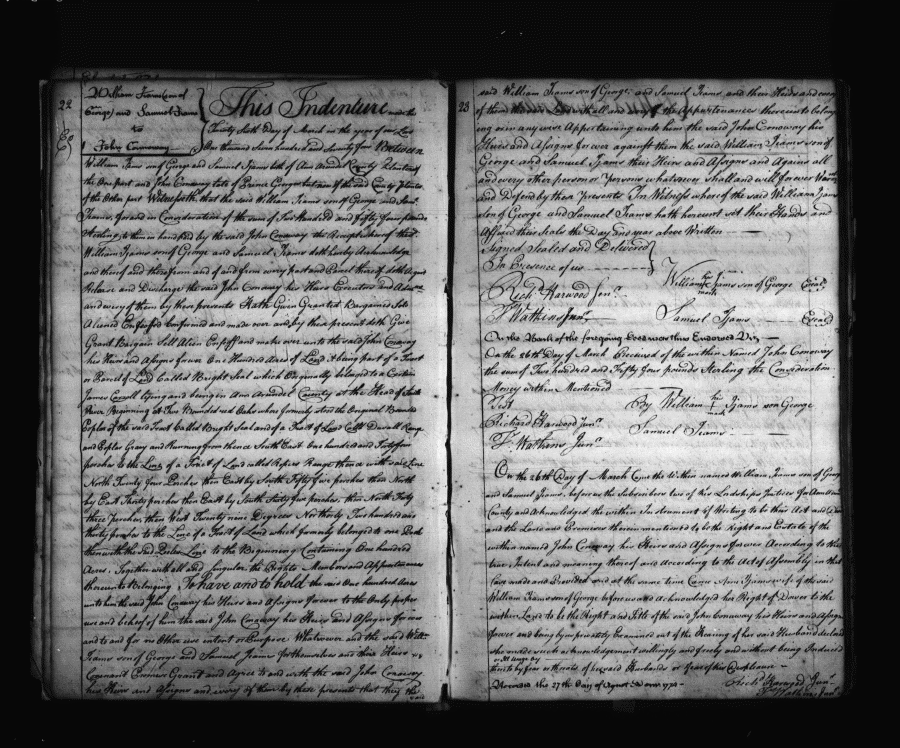 22
William Iiams (son of
George) and Samuel Iiams
to
John Conaway
This Indenture made the
Twenty Sixth Day of March in the year of our Lord
One thousand seven hundred and seventy four Between
William Iiams son of George and Samuel Iiams both of Ann Arundel County Planters of
the One part and John Conaway late of Prince Georges but now of the said County Planter
of the Other part Witnesseth that the said William Iiams son of George and Saml.
Iiams, for and in Consideration of the sum of Two Hundred and Fifty Four pounds
Sterling to them in hand paid by the said John Conaway the Receipt whereof they
William Iiams son of George and Samuel Iiams doth hereby Acknowledge
and thereof and therefrom and of and from every part and Parcel thereof doth Acquit
Release and Discharge the said John Conaway his Heirs Executors and Adm
and every of them by these presents Hath Given Granted Bargained Sold
Aliened Enfeoffed Confirmed and made over and by these presents doth Give
Grant Bargain Sell Alien Enfeoff and make over unto the said John Conaway
his Heirs and Assigns forever One Hundred Acres of Land it being part of a Tract
or Parcel of Land Called Bright Seat which Originally belonged to a Certain
James Carroll lying and being in Ann Arundel County at the Head of South
River Beginning at Two Bounded red Oaks where formerly stood the Original Bounded
Poplar of the said Tract Called Bright Seat and of a Tract of Land Calld Duvall Range
and Running from thence South East One hundred and Forty four
perches to the Line of a Tract of Land called Ropers Range thence with said Line
North Twenty four Perches then East by South Fifty five perches then North
by East Thirty perches then East by South Sixty five perches then North Forty
three Perches, then West Twenty nine Degrees Northerly Two hundred and
thirty perches to the Line of a Tract of Land which formerly belonged to one
then with the said Line to the Beginning Containing One hundred
Acres. Together with all and singular the Rights Members and Appurtenances
thereunto Belonging To have and to hold the said One hundred Acres
unto him the said John Conaway his Heirs and Assigns forever to the Only proper
use and behoof of him the said John Conaway his Heirs and Assigns forever
and to and for no Other use intent or Purpose Whatsoever and the said Willm.
Iiams son of George and Samuel Iiams for themselves and their Heirs
Covenant Promise Grant and Agree to and with the said John Conaway
his Heirs and Assigns and every of them by these presents that they the
said
23
said William Iiams son of George, and Samuel Iiams and their Heirs and every
of them shall and the Appurtenances thereunto belong
ing or in anywise Appertaining unto him the said John Conaway his
Heirs and Assigns forever against them the said William Iiams son of
George and Samuel Iiams their Heirs and Assigns and Against all
and every other person or persons whatsoever shall and will forever Warrant
and Defend by these Presents In Witness whereof the said William Iiams
son of George and Samuel Iiams hath hereunto set their Hands and
Affixed their Seals the Day and year above Written
Signed Sealed and Delivered
In Presence of us
Richd. Harwood Junr.
T. Watkins Junr.
William his mark Iiams son of George (Seal)
Samuel Iiams (Seal)
On the Back of the foregoing Deed was thus Endorsed Viz
On the 26th Day of March Received of the within Named John Conaway
the sum of Two hundred and Fifty Four pounds Sterling the Consideration
Money within Mentioned
Test
Richard Harwood junr.
T. Watkins Junr.
By William his mark Iiams son George
Samuel Iiams
On the 26th Day of March Came the within named William Iiams son of George
and Samuel Iiams before us the Subscribers two of his Lordships Justices for Ann Arundel
County and Acknowledged the within Instrument of Writing to be their Act and Deed
and the Land and Premises therein mentioned to be the Right and Estate of the
within named John Conaway his Heirs and Assigns forever According to the
true Intent and meaning thereof and according to the Act of Assembly in that
Case made and Provided and at the same time Came Ann Iiams wife of the said
William Iiams son of George before us and Acknowledged her Right of Dower to the
within Land to be the Right and Title of the said John Conaway his Heirs and Assigns
forever and being by us privately Examined out of the Hearing of her said Husband declared
she made such acknowledgement willingly and freely and without being Induced
thereto by fear or threats of her said Husband or fear of his Displeasure
Recorded this 27th Day of August Domini 1774
Richd. Harwood Junr.
Ths. Watkins Junr.